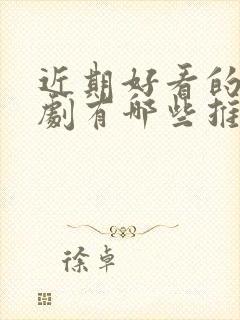 近期好看的
劇有哪些推
徐卓